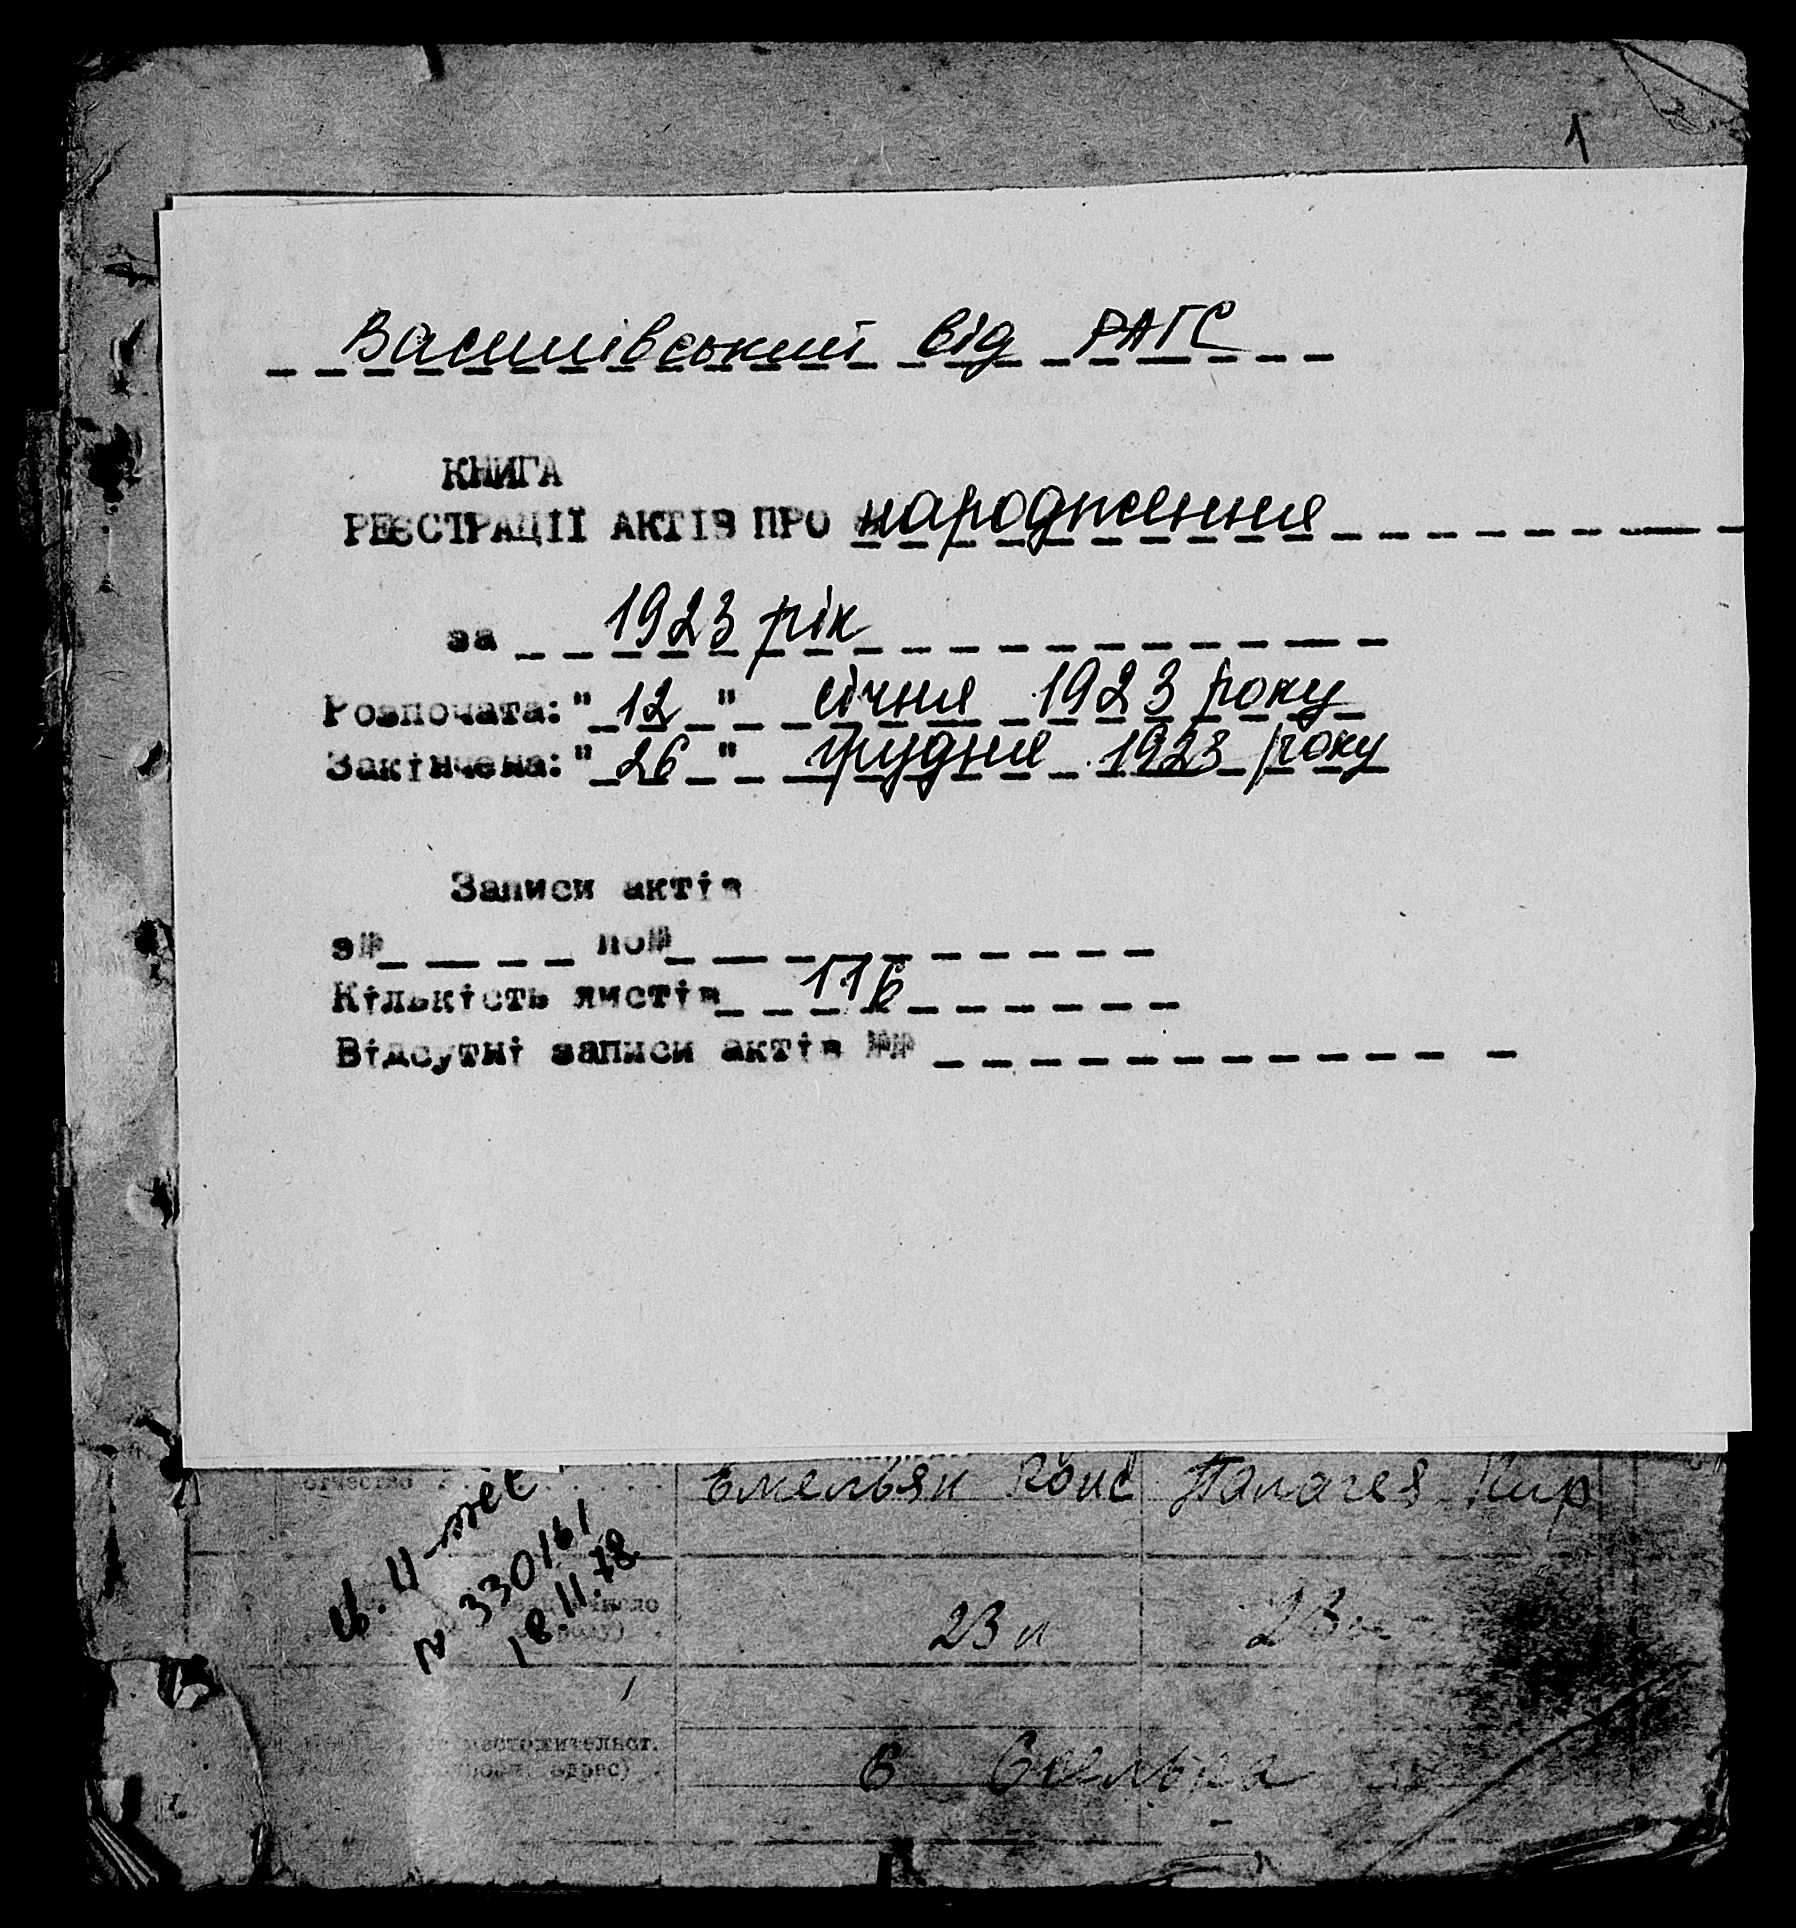 1
Василівський від РАГС
КНИГА
РЕЄСТРАЦІЇ АКТІВ ПРО народження
за 1923 рік
Розпочата: "12" січня 1923 року
Закінчена: "26" грудня 1923 року
Записи актів
з№ по№
Кількість листів 116
Відсутні записи актів №№
отчество
Емельян Панагея Кир
св. II
N 330161
18.11.78
23 л 23
местожительст.
адрес)
с